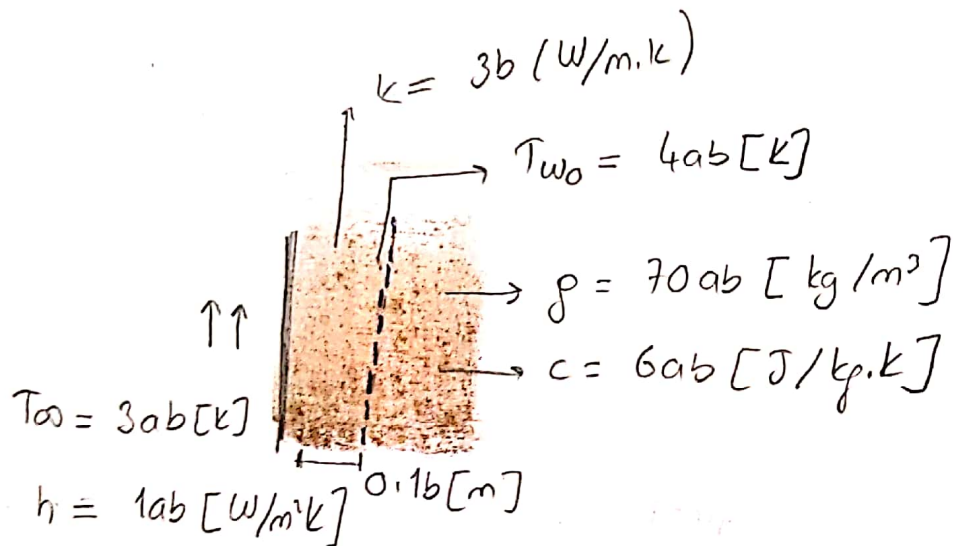 k = 3b (W/m.k)
Tw₀ = 4ab [k]
ρ = 70ab [kg/m³]
↑↑
c = 6ab [J/kg.k]
T∞ = 3ab [k]
0.1b [m]
h = 1ab [W/m²k]